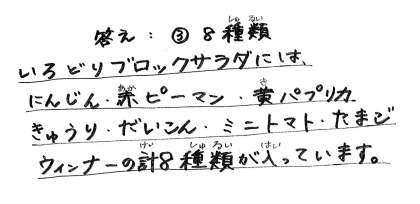 答え：③ 8種類
いろどりブロックサラダには、
にんじん・赤ピーマン・黄パプリカ
きゅうり・だいこん・ミニトマト・たまご
ウィンナーの計8種類が入っています。